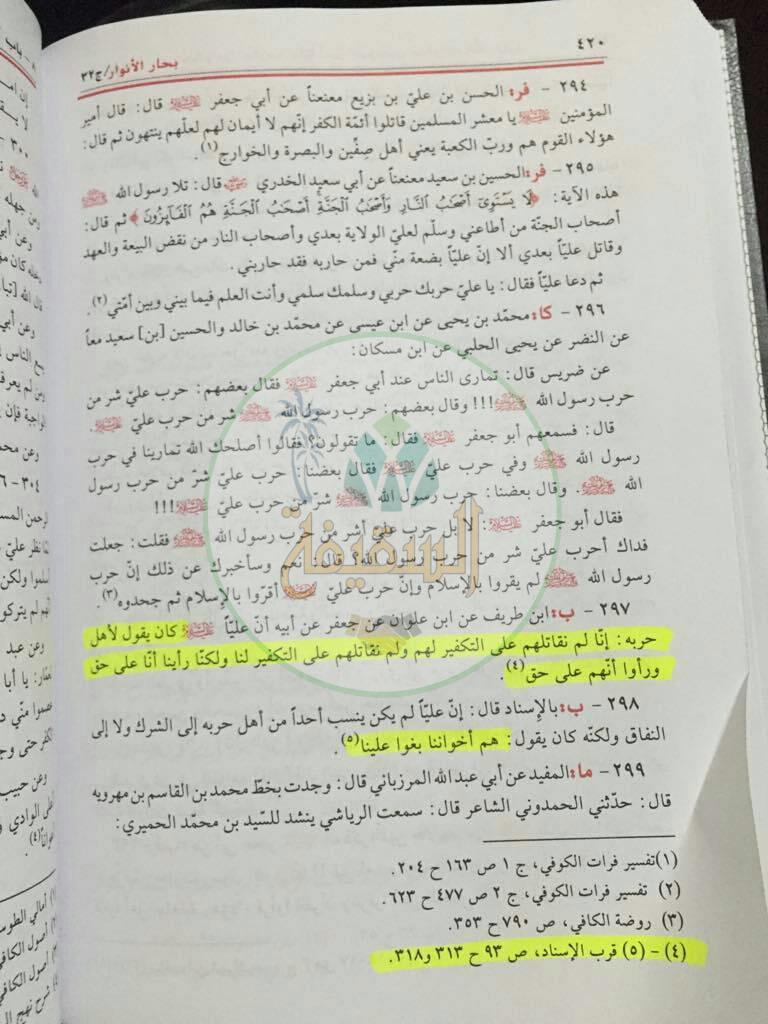 ٤٢٠
بحار الأنوار/ج٣٢
٢٩٤ - فر: الحسن بن عليّ بن بزيع معنعناً عن أبي جعفر عليه السلام قال: قال أمير
المؤمنين عليه السلام يا معشر المسلمين قاتلوا أئمّة الكفر إنّهم لا أيمان لهم لعلّهم ينتهون ثم قال:
هؤلاء القوم هم وربّ الكعبة يعني أهل صِفّين والبصرة والخوارج(١).
٢٩٥ - فر: الحسين بن سعيد معنعناً عن أبي سعيد الخدري قال: تلا رسول الله
هذه الآية: ﴿لَا يَسْتَوِي أَصْحَابُ النَّارِ وَأَصْحَابُ الْجَنَّةِ أَصْحَابُ الْجَنَّةِ هُمُ الْفَائِزُونَ﴾ ثم قال:
أصحاب الجنّة من أطاعني وسلّم لعليّ الولاية بعدي وأصحاب النار من نقض البيعة والعهد
وقاتل عليّاً بعدي ألا إنّ عليّاً بضعة منّي فمن حاربه فقد حاربني.
ثم دعا عليّاً فقال: يا عليّ حربك حربي وسلمك سلمي وأنت العلم فيما بيني وبين أمّتي(٢).
٢٩٦ - كا: محمّد بن يحيى عن ابن عيسى عن محمد بن خالد والحسين [بن] سعيد معاً
عن النضر عن يحيى الحلبي عن ابن مسكان:
عن ضريس قال: تمارى الناس عند أبي جعفر عليه السلام فقال بعضهم: حرب عليّ شر من
حرب رسول الله !!! وقال بعضهم: حرب رسول الله شر من حرب عليّ .
قال: فسمعهم أبو جعفر عليه السلام فقال: ما تقولون؟ فقالوا أصلحك الله تمارينا في حرب
رسول الله وفي حرب عليّ فقال بعضنا: حرب عليّ شرّ من حرب رسول
الله . وقال بعضنا: حرب رسول الله شرّ من حرب عليّ !!!
فقال أبو جعفر عليه السلام: لا بل حرب عليّ أشر من حرب رسول الله فقلت: جعلت
فداك أحرب عليّ شر من حرب رسول الله؟ قال: نعم وسأخبرك عن ذلك إنّ حرب
رسول الله لم يقروا بالإسلام وإنّ حرب عليّ أقرّوا بالإسلام ثم جحدوه(٣).
٢٩٧ - ب: ابن طريف عن ابن علوان عن جعفر عن أبيه أنّ عليّاً عليه السلام كان يقول لأهل
حربه: إنّا لم نقاتلهم على التكفير لهم ولم نقاتلهم على التكفير لنا ولكنّا رأينا أنّا على حق
ورأوا أنّهم على حق(٤).
٢٩٨ - ب: بالإسناد قال: إنّ عليّاً لم يكن ينسب أحداً من أهل حربه إلى الشرك ولا إلى
النفاق ولكنّه كان يقول: هم أخواننا بغوا علينا(٥).
٢٩٩ - ما: المفيد عن أبي عبد الله المرزباني قال: وجدت بخطّ محمد بن القاسم بن مهرويه
قال: حدّثني الحمدوني الشاعر قال: سمعت الرياشي ينشد للسّيد بن محمّد الحميري:
(١) تفسير فرات الكوفي، ج ١ ص ١٦٣ ح ٢٠٤.
(٢) تفسير فرات الكوفي، ج ٢ ص ٤٧٧ ح ٦٢٣.
(٣) روضة الكافي، ص ٧٩٠ ح ٣٥٣.
(٤) - (٥) قرب الإسناد، ص ٩٣ ح ٣١٣ و٣١٨.
السقيفة